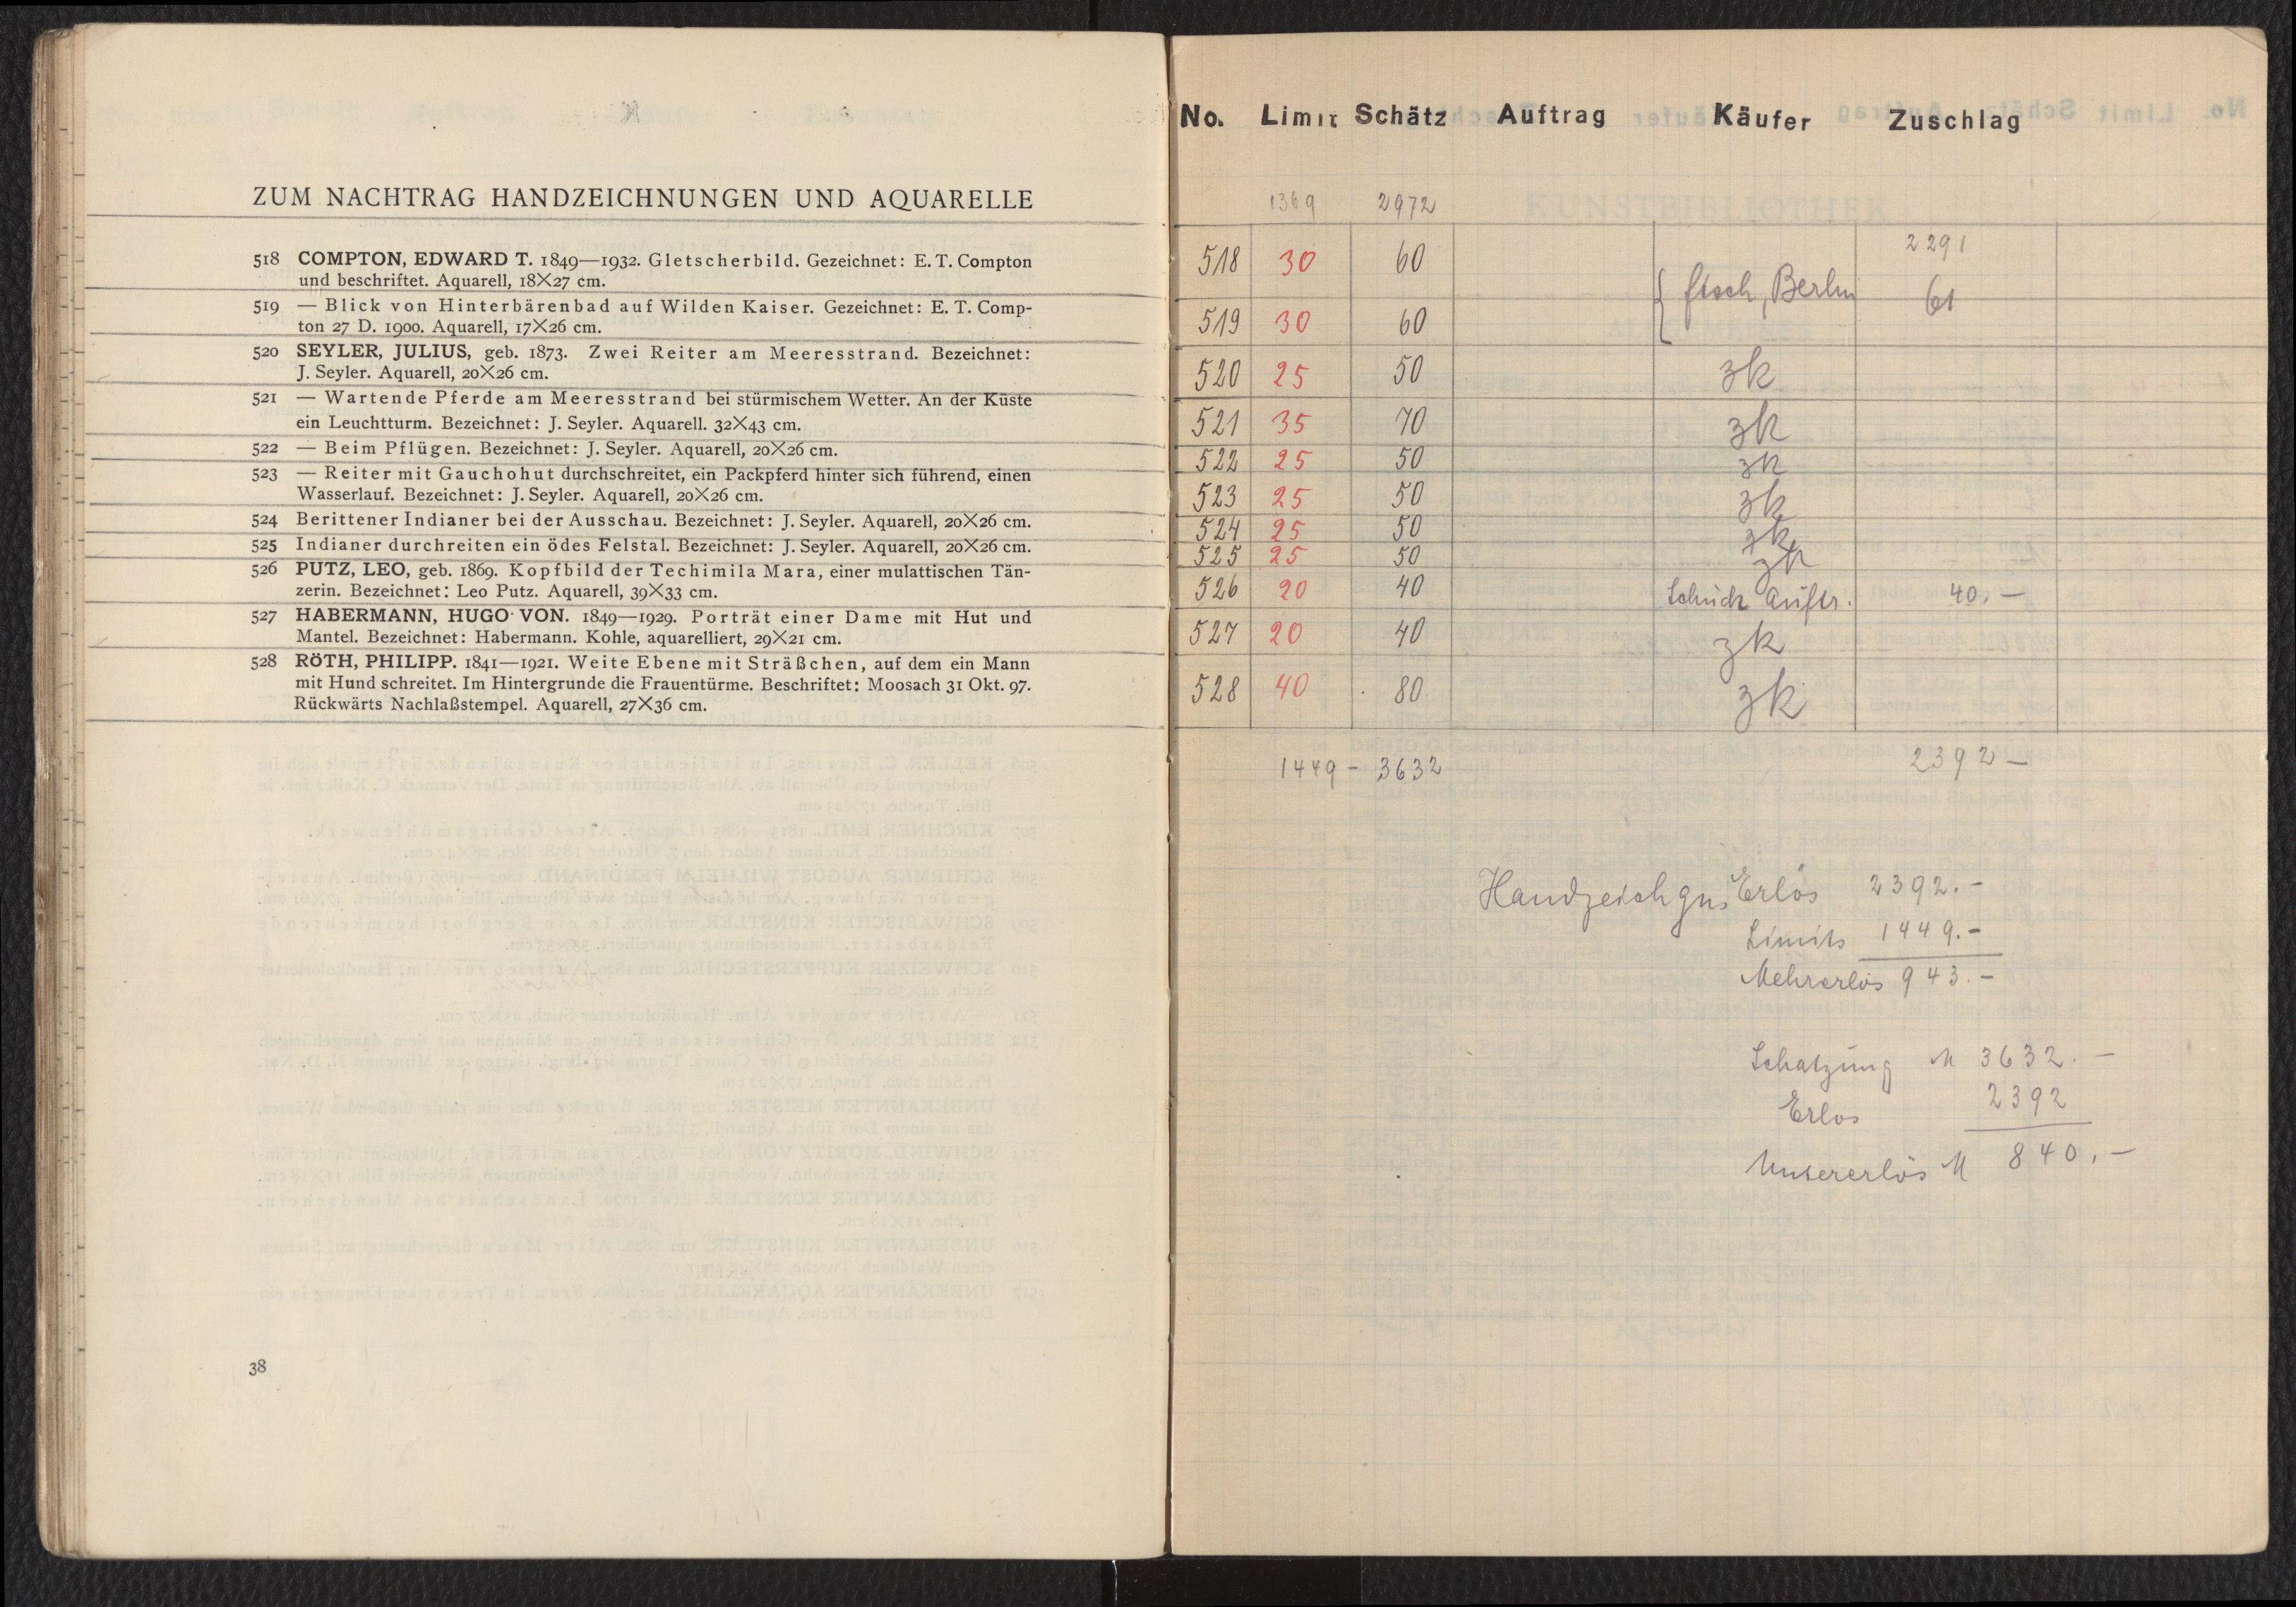 ZUM NACHTRAG HANDZEICHNUNGEN UND AQUARELLE
518 COMPTON, EDWARD T. 1849—1932. Gletscherbild. Gezeichnet: E. T. Compton
und beschriftet. Aquarell, 18×27 cm.
519 — Blick von Hinterbärenbad auf Wilden Kaiser. Gezeichnet: E. T. Comp-
ton 27 D. 1900. Aquarell, 17×26 cm.
520 SEYLER, JULIUS, geb. 1873. Zwei Reiter am Meeresstrand. Bezeichnet:
J. Seyler. Aquarell, 20×26 cm.
521 — Wartende Pferde am Meeresstrand bei stürmischem Wetter. An der Küste
ein Leuchtturm. Bezeichnet: J. Seyler. Aquarell. 32×43 cm.
522 — Beim Pflügen. Bezeichnet: J. Seyler. Aquarell, 20×26 cm.
523 — Reiter mit Gauchohut durchschreitet, ein Packpferd hinter sich führend, einen
Wasserlauf. Bezeichnet: J. Seyler. Aquarell, 20×26 cm.
524 Berittener Indianer bei der Ausschau. Bezeichnet: J. Seyler. Aquarell, 20×26 cm.
525 Indianer durchreiten ein ödes Felstal. Bezeichnet: J. Seyler. Aquarell, 20×26 cm.
526 PUTZ, LEO, geb. 1869. Kopfbild der Techimila Mara, einer mulattischen Tän-
zerin. Bezeichnet: Leo Putz. Aquarell, 39×33 cm.
527 HABERMANN, HUGO VON. 1849—1929. Porträt einer Dame mit Hut und
Mantel. Bezeichnet: Habermann. Kohle, aquarelliert, 29×21 cm.
528 RÖTH, PHILIPP. 1841—1921. Weite Ebene mit Sträßchen, auf dem ein Mann
mit Hund schreitet. Im Hintergrunde die Frauentürme. Beschriftet: Moosach 31 Okt. 97.
Rückwärts Nachlaßstempel. Aquarell, 27×36 cm.
38
No. Limit Schätz Auftrag Käufer Zuschlag
1369 2972
2291
518 30 60
Berlin 61
519 30 60
520 25 50 zk
521 35 70 zk
522 25 50 zk
523 25 50 zk
524 25 50 zk
525 25 50 zk
526 20 40 Auftr. 40.—
527 20 40 zk
528 40 80 zk
1449 - 3632 2392 —
Handzeichgns Erlös 2392.-
Limits 1449.-
Mehrerlös 943.-
Schatzung M 3632.-
Erlös 2392
M 840.-